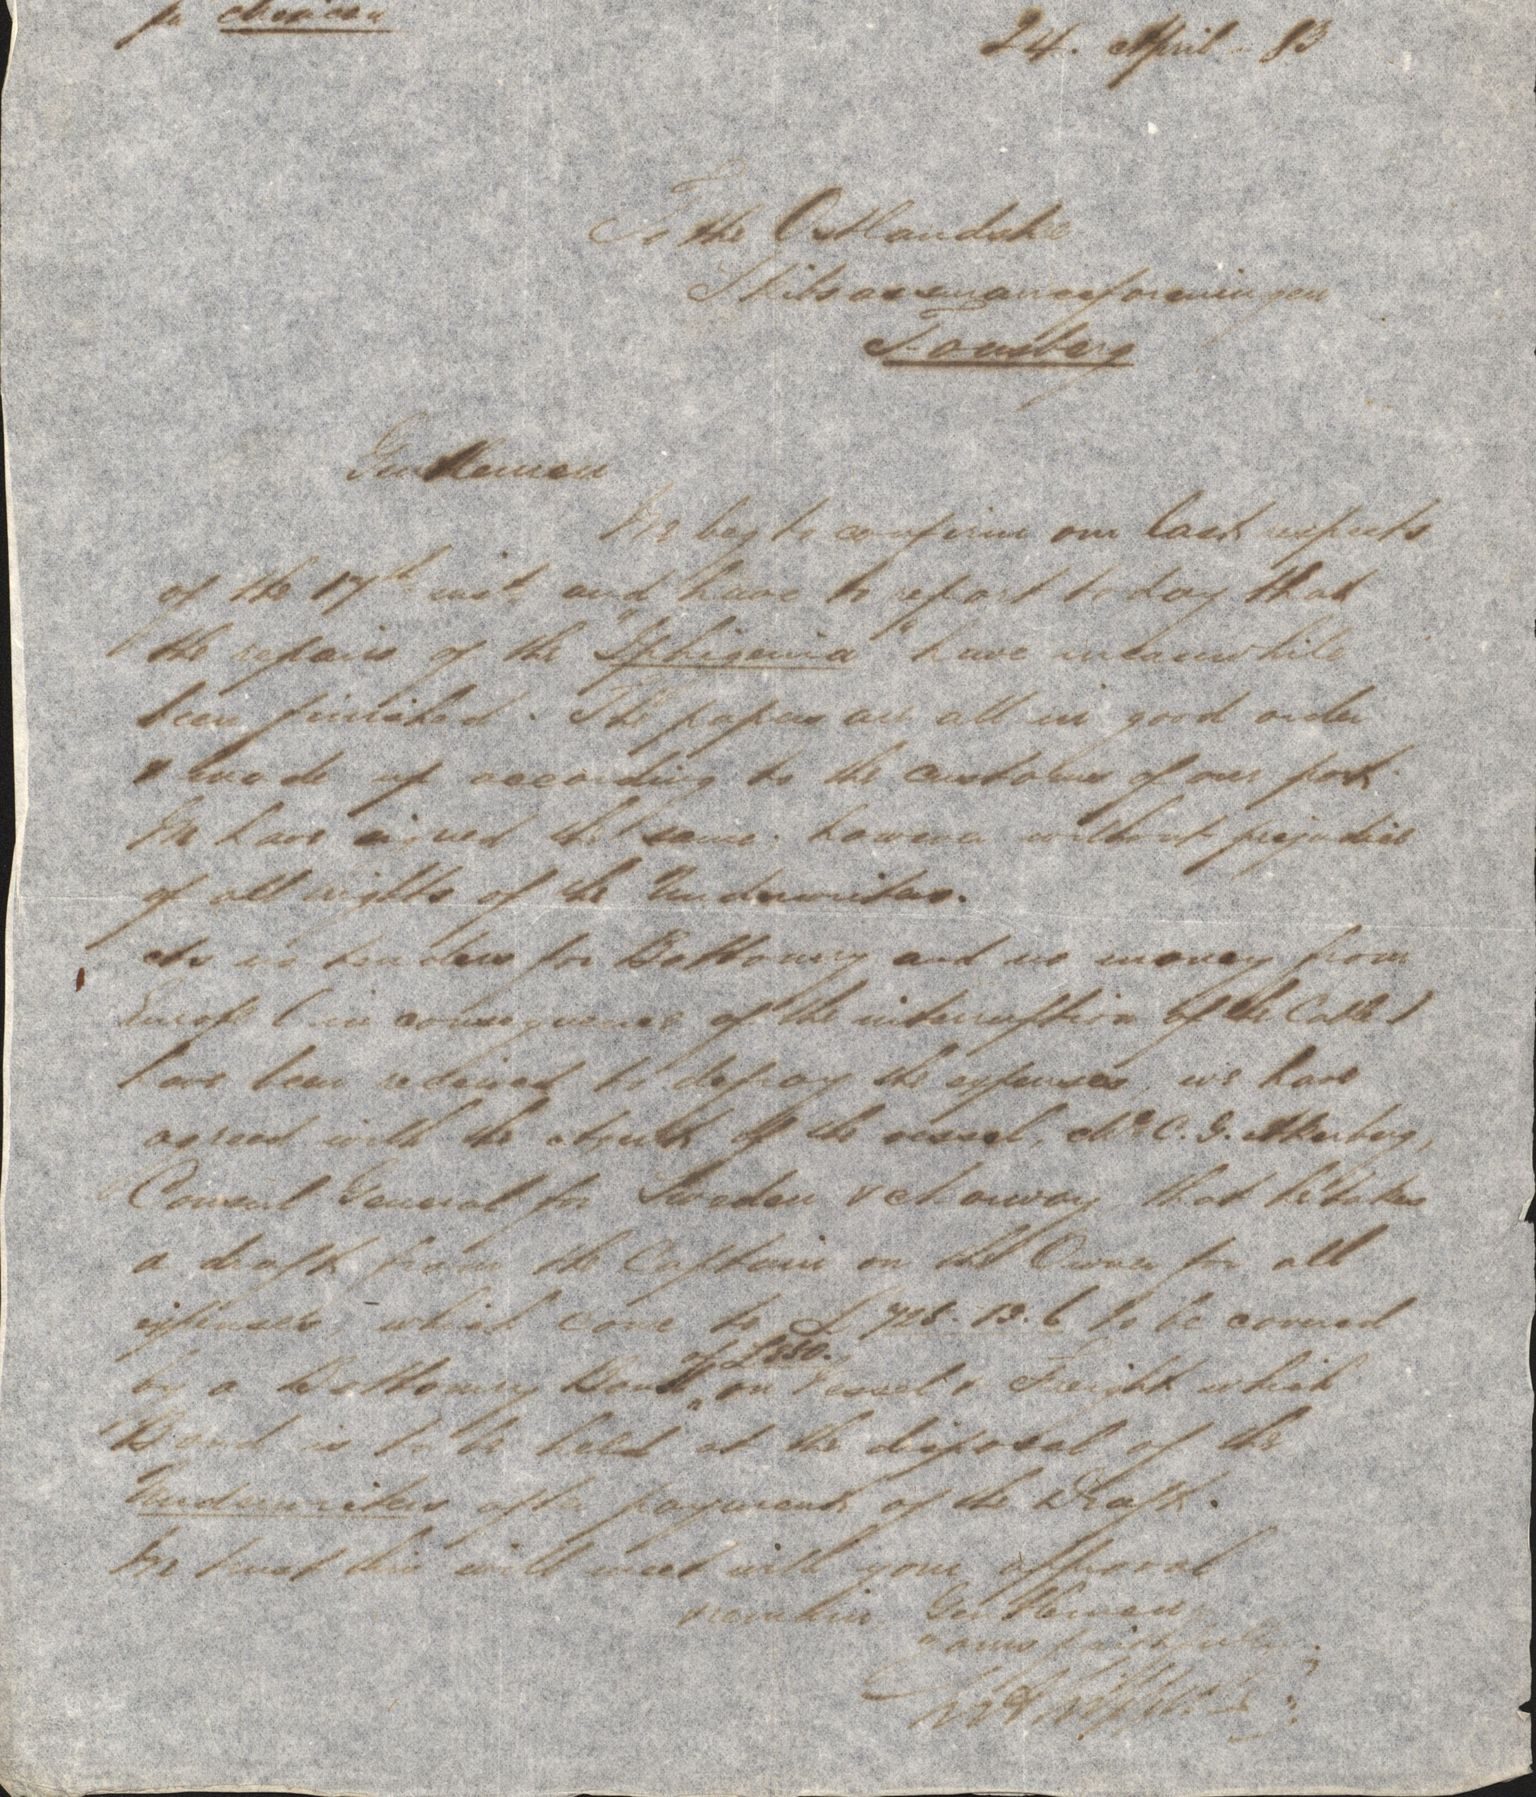 pr Mexican
24. April - 83
To the Ostlandske
Skibsassuranceforeningen
Tonsberg
Gentlemen
We beg to confirm our last respects
of the 17th inst. and have to report today that
the repairs of the "Iphigenia" have meanwhile
been finished. The papers are all in good order
& made up according to the customs of our port.
We have signed the same, however without prejudice
of all rights of the Underwriters.
As no tenders for Bottomry and no money from
Europe (in consequence of the interruption of the Cable)
have been received to defray the expenses, we have
agreed with the Agent of the vessel, Mr. C. G. Akerberg,
Consul General for Sweden & Norway that he takes
a draft from the Captain on the Owner for all
expenses, which come to £ 13. 6 to be covered
by a Bottomry Bond of £ 550. on Vessel & Freight which
Bond is to be held at the disposal of the
Underwriters after payment of the Draft.
We trust this will meet with your approval
& remain Gentlemen
yours faithfully